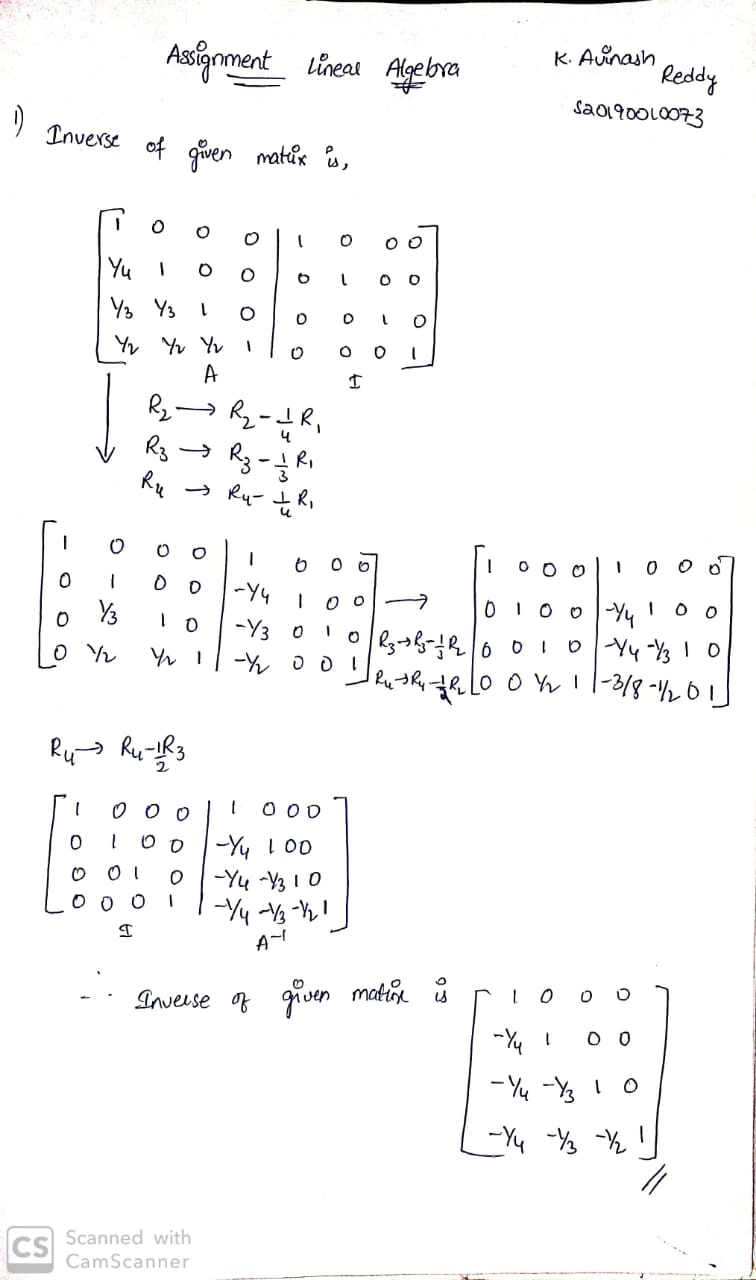 Assignment Linear Algebra
K. Avinash Reddy
S20190010073
1) Inverse of given matrix is,
[ 1 0 0 0 | 1 0 0 0 ]
[ 1/4 1 0 0 | 0 1 0 0 ]
[ 1/3 1/3 1 0 | 0 0 1 0 ]
[ 1/2 1/2 1/2 1 | 0 0 0 1 ]
A I
↓ R2 → R2 - 1/4 R1
R3 → R3 - 1/3 R1
R4 → R4 - 1/4 R1
[ 1 0 0 0 | 1 0 0 0 ]
[ 0 1 0 0 | -1/4 1 0 0 ]
[ 0 1/3 1 0 | -1/3 0 1 0 ]
[ 0 1/2 1/2 1 | -1/2 0 0 1 ]
→
R3 → R3 - 1/3 R2
R4 → R4 - 1/2 R2
[ 1 0 0 0 | 1 0 0 0 ]
[ 0 1 0 0 | -1/4 1 0 0 ]
[ 0 0 1 0 | -1/4 -1/3 1 0 ]
[ 0 0 1/2 1 | -3/8 -1/2 0 1 ]
R4 → R4 - 1/2 R3
[ 1 0 0 0 | 1 0 0 0 ]
[ 0 1 0 0 | -1/4 1 0 0 ]
[ 0 0 1 0 | -1/4 -1/3 1 0 ]
[ 0 0 0 1 | -1/4 -1/3 -1/2 1 ]
I A^-1
∴ Inverse of given matrix is
[ 1 0 0 0 ]
[ -1/4 1 0 0 ]
[ -1/4 -1/3 1 0 ]
[ -1/4 -1/3 -1/2 1 ] //
CS Scanned with
CamScanner